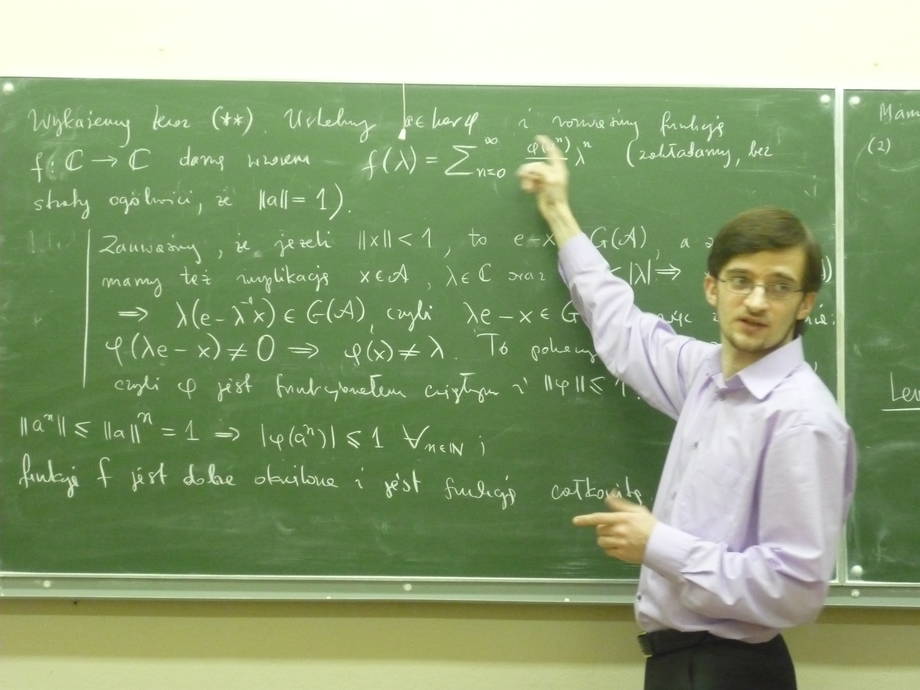 Wykażemy teraz (**). Ustalmy a∈ker φ i rozważmy funkcję
f: ℂ → ℂ daną wzorem f(λ) = ∑_{n=0}^{∞} φ(aⁿ) λⁿ (zakładamy, bez
straty ogólności, że ‖a‖ = 1).
Zauważmy, że jeżeli ‖x‖ < 1, to e-x G(A), a
mamy też implikację x∈A, λ∈ℂ oraz <|λ| ⇒
⇒ λ(e-λ⁻¹x) ∈ G(A), czyli λe-x ∈ G więc
φ(λe-x) ≠ 0 ⇒ φ(x) ≠ λ. To
czyli φ jest funkcjonałem ciągłym i ‖φ‖ ≤ 1.
‖aⁿ‖ ≤ ‖a‖ⁿ = 1 ⇒ |φ(aⁿ)| ≤ 1 ∀_{n∈ℕ};
funkcja f jest dobrze określona i jest funkcją całkowitą
Mam
(2)
Lem